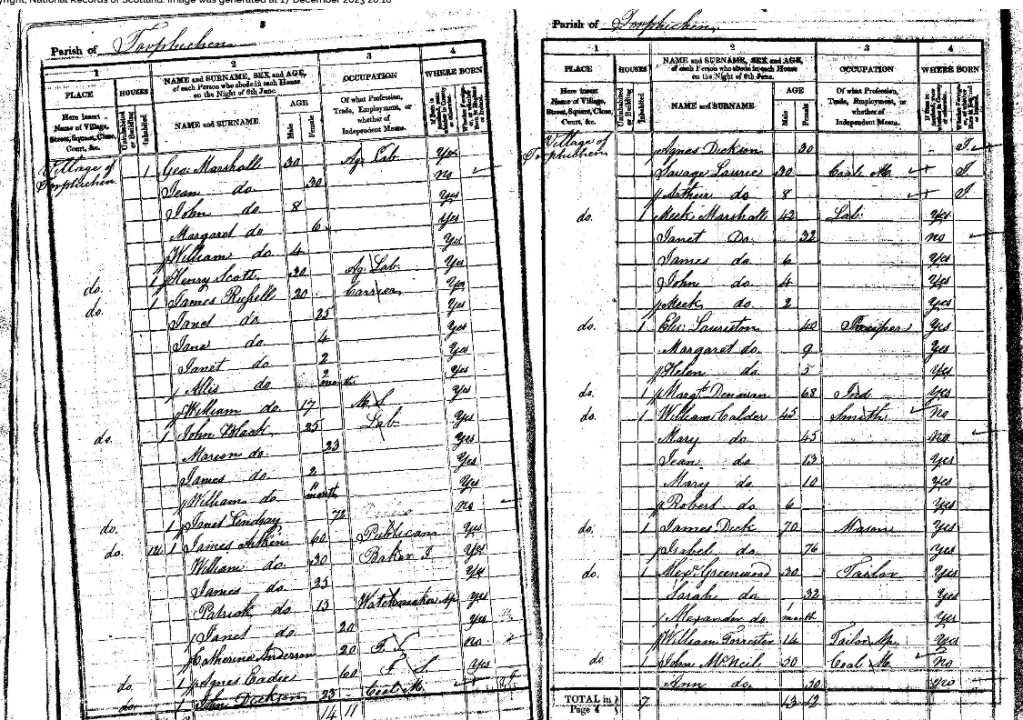 yright, National Records of Scotland. Image was generated at 17 December 2023 20:16
3
Parish of Torphichen
1 2 3 4
PLACE HOUSES NAME and SURNAME, SEX and AGE, of each Person who abode in each House on the Night of 6th June. OCCUPATION WHERE BORN
Here Insert Name of Village, Street, Square, Close, Court, &c. Uninhabited or Building Inhabited NAME and SURNAME AGE Male Female Of what Profession, Trade, Employment, or whether of Independent Means.
Village of Torphichen 1 Geo. Marshall 30 Ag. Lab. Yes
Jean do. 30 no
John do. 8 Yes
Margaret do. 6 Yes
William do. 4 Yes
do. 1 Henry Scott 30 Ag. Lab. Yes
do. 1 James Russell 20 Carrier Yes
Janet do. 25 Yes
Jane do. 4 Yes
Janet do. 2 Yes
do. 2 month Yes
William do. 17 Yes
do. 1 John Black 25 Lab. Yes
Marion do. 23 Yes
James do. 2 Yes
William do. 11 month Yes
do. 1 Janet Lindsay 72 no
do. 1 James Aitkin 60 Publican Yes
William do. 30 Baker J. Yes
James do. 25 Yes
Patrick do. 13 Watchmaker Ap. Yes
Janet do. 20 Yes
Catherine Anderson 20 F. S. no
1 Agnes Eadie 60 F. S. Yes
do. 1 John Dickson 25 Coal M.
14 11
Parish of Torphichen
1 2 3 4
PLACE HOUSES NAME and SURNAME, SEX and AGE, of each Person who abode in each House on the Night of 6th June. OCCUPATION WHERE BORN
Here Insert Name of Village, Street, Square, Close, Court, &c. Uninhabited or Building Inhabited NAME and SURNAME AGE Male Female Of what Profession, Trade, Employment, or whether of Independent Means.
Village of Torphichen Agnes Dickson 30 I
Savage Laurie 30 Coal M. I
Arthur do. 8 I
do. 1 Meek Marshall 42 Lab. Yes
Janet Do. 32 no
James do. 6 Yes
John do. 4 Yes
Meek do. 2 Yes
do. 1 Eliz. Lauriston 40 Yes
Margaret do. 9 Yes
Helen do. 5 Yes
do. 1 Margt. Denovan 68 Ind. Yes
do. 1 William Calder 45 Smith no
Mary do. 45 no
Jean do. 13 Yes
Mary do. 10 Yes
Robert do. 6 Yes
do. 1 James Dick 70 Mason Yes
Isabel do. 76 Yes
do. 1 Alexr. Greenwood 30 Tailor Yes
Sarah do. 32 Yes
Alexander do. 1 month Yes
William Forrester 14 Tailor Ap. Yes
do. 1 John McNeil 30 Coal M. no
Ann do. 30 no
TOTAL in Page 4 7 13 12